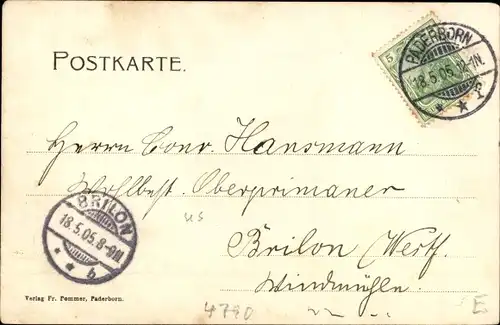 POSTKARTE.
5
PADERBORN
18.5.05.12-1N.
* * F
Herrn Conr. Hansmann
Wohlbest. Oberprimaner
us
BRILON
18.5.05.8-9N.
* * b
Brilon Westf.
Windmühle.
Verlag Fr. Pommer, Paderborn.
4790
E